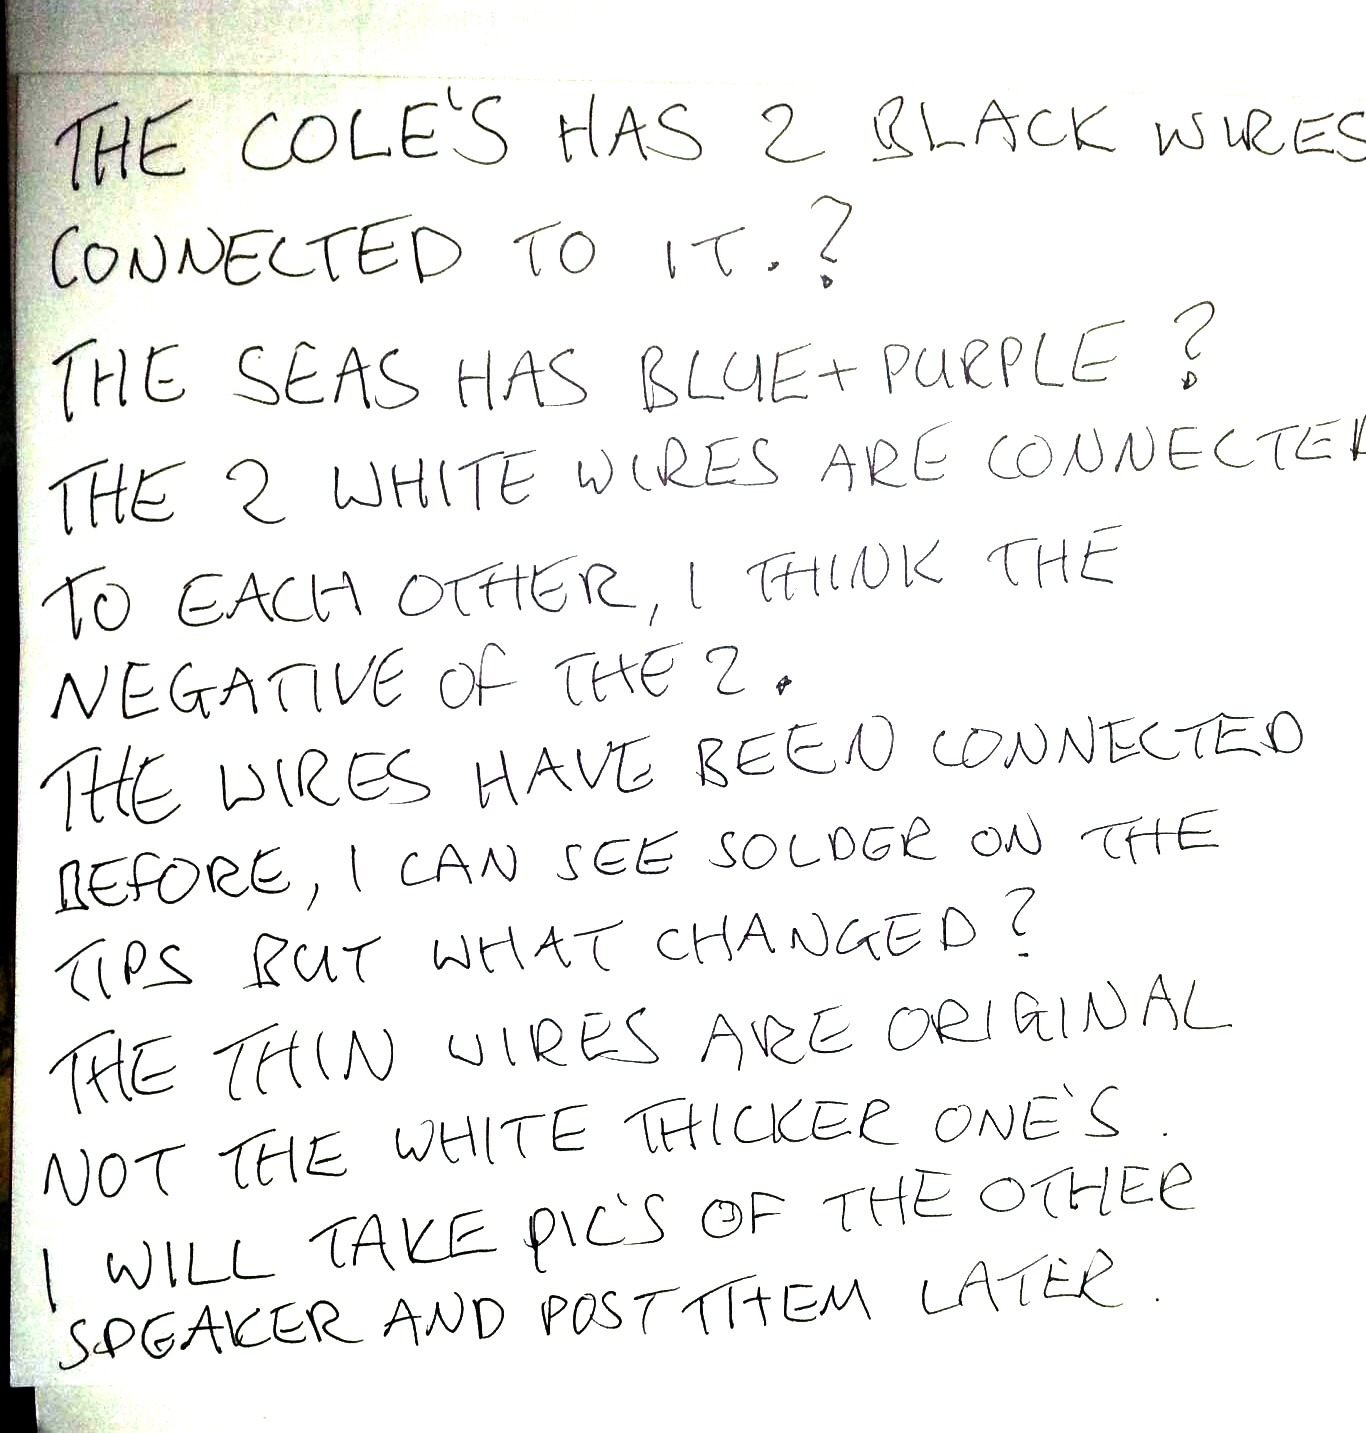 THE COLE'S HAS 2 BLACK WIRES
CONNECTED TO IT. ?
THE SEAS HAS BLUE + PURPLE ?
THE 2 WHITE WIRES ARE CONNECTED
TO EACH OTHER, I THINK THE
NEGATIVE OF THE 2.
THE WIRES HAVE BEEN CONNECTED
BEFORE, I CAN SEE SOLDER ON THE
TIPS BUT WHAT CHANGED ?
THE THIN WIRES ARE ORIGINAL
NOT THE WHITE THICKER ONE'S.
I WILL TAKE PIC'S OF THE OTHER
SPEAKER AND POST THEM LATER.